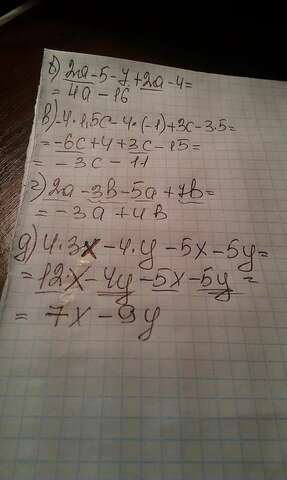 б) 2a-5-y+2a-4=
=4a-16
в)-4·1,5c-4·(-1)+3c-3·5=
=-6c+4+3c-15=
=-3c-11
г) 2a-3b-5a+7b=
=-3a+4b
д) 4·3x-4·y-5x-5y=
=12·x-4y-5x-5y=
=7x-9y